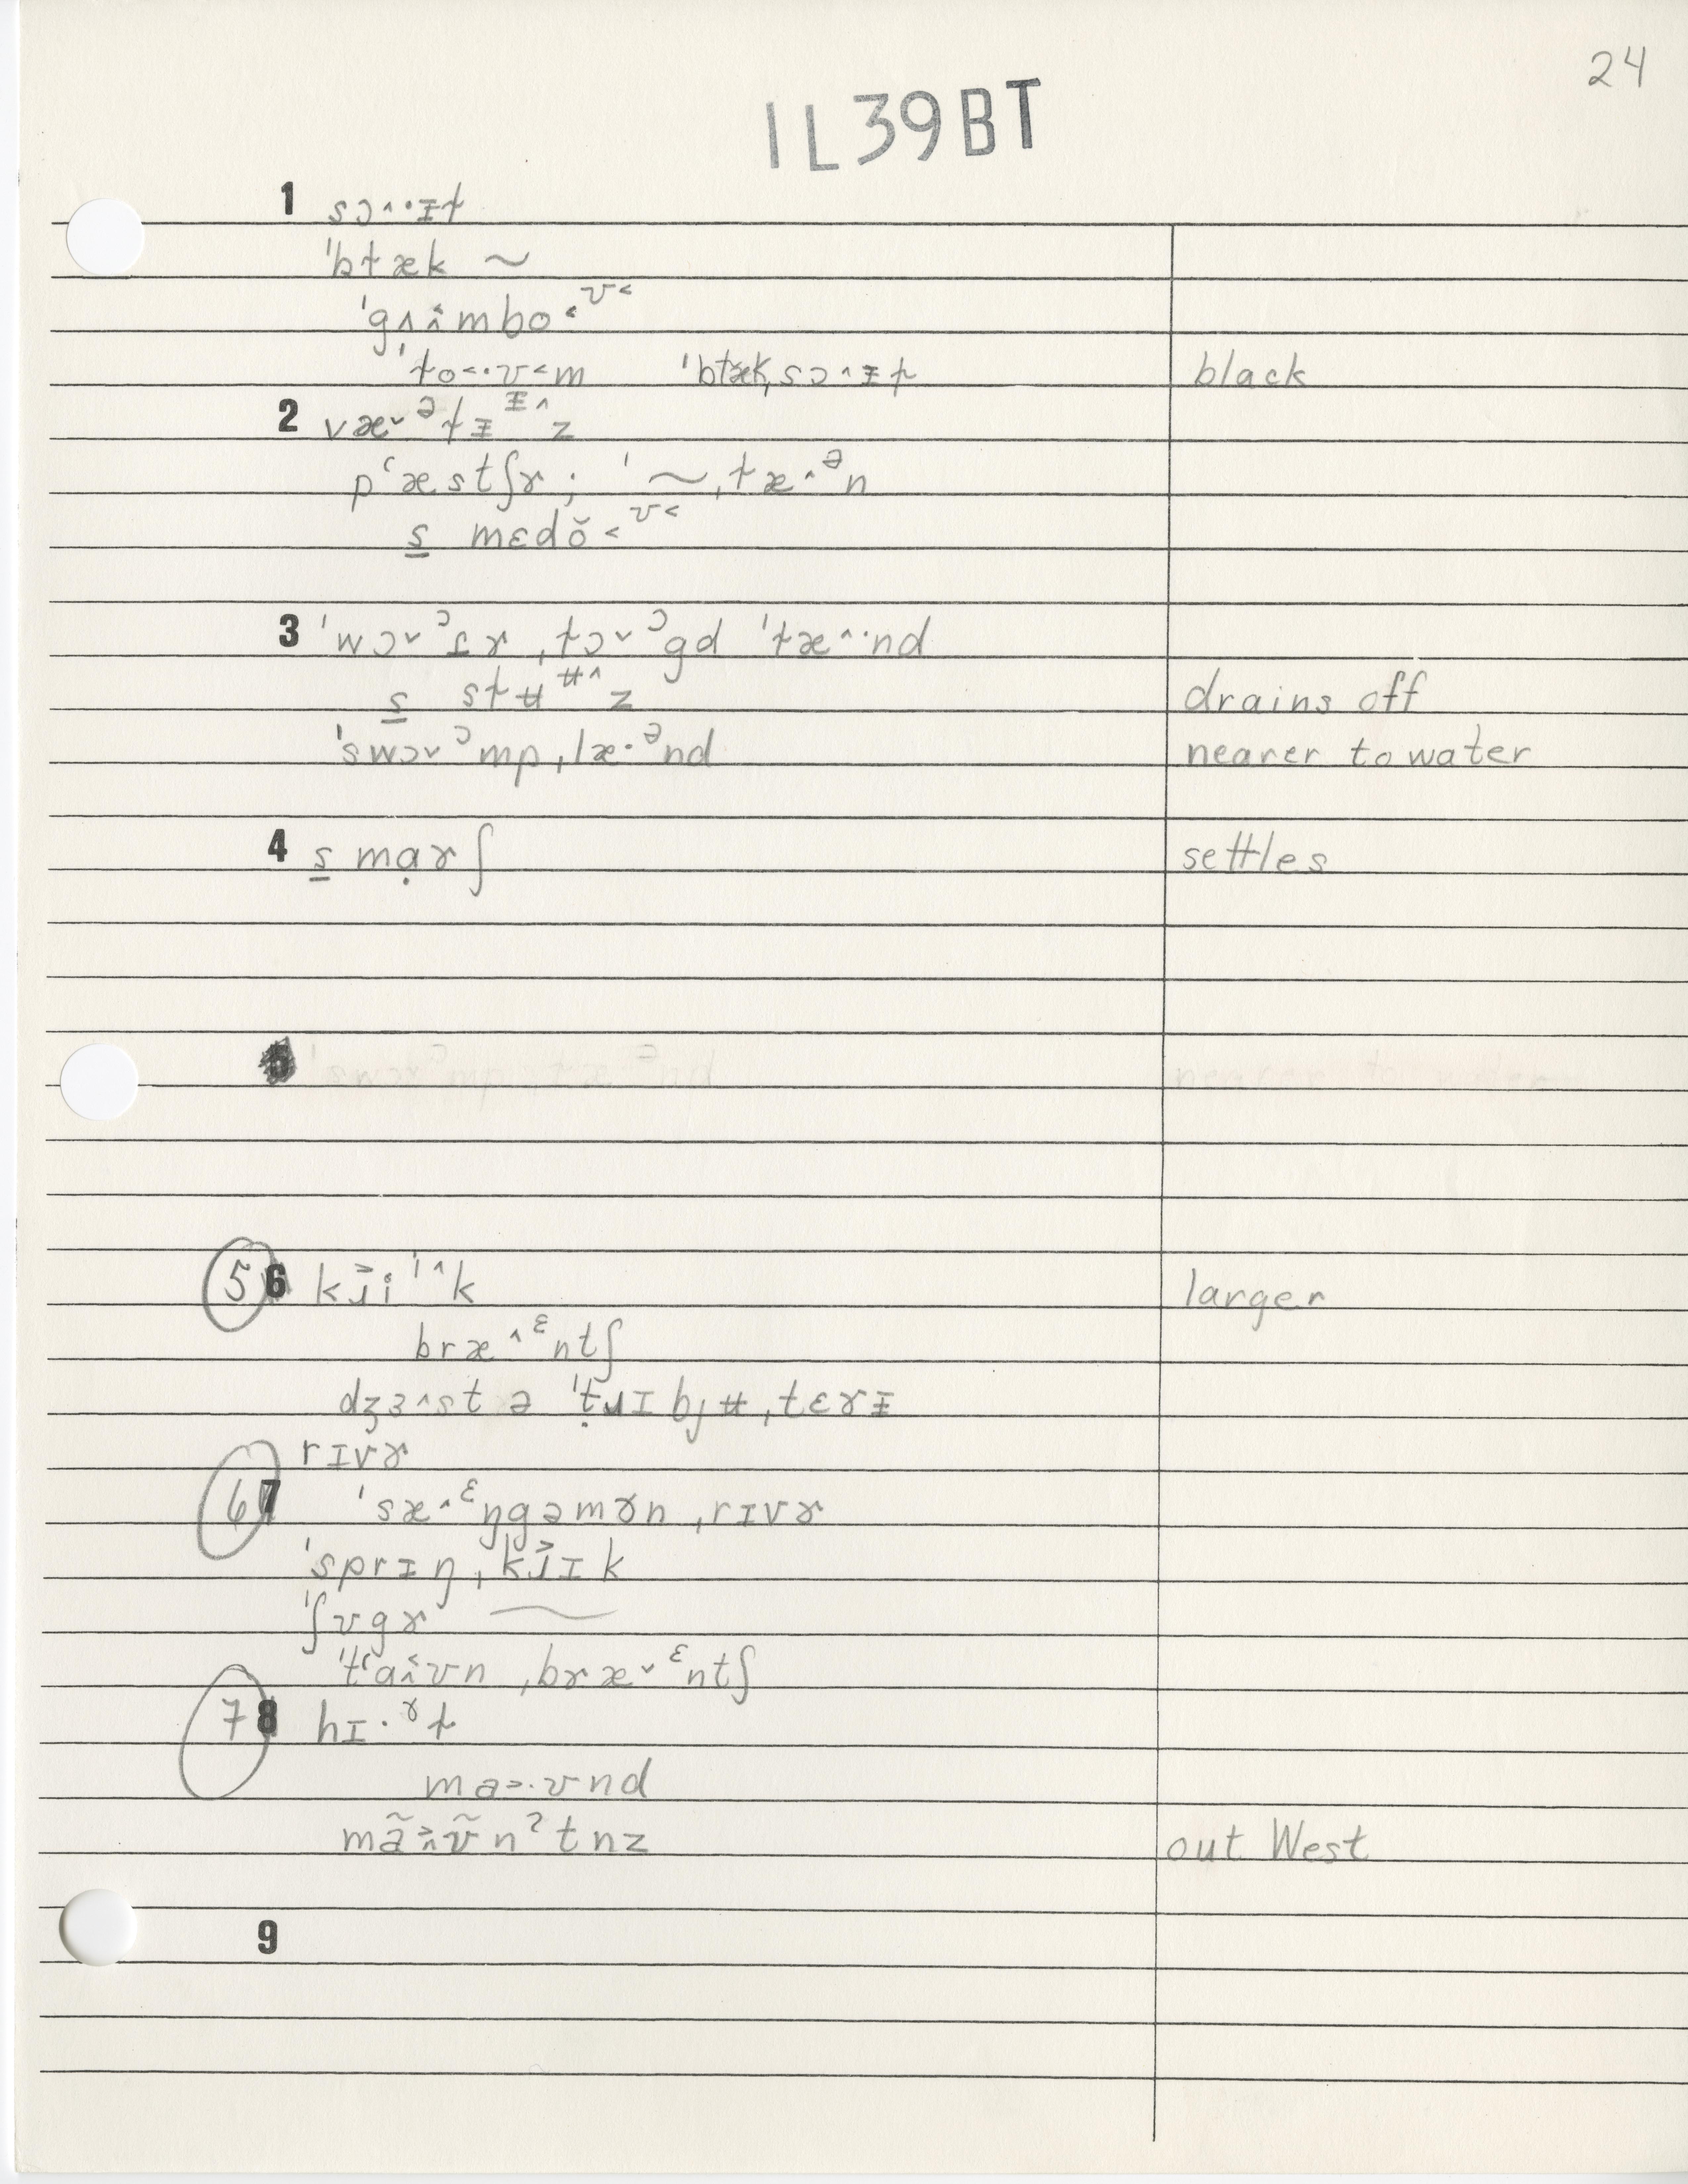 24
IL39BT
1 sɔ^·ɪ̵ɫ
ˈbɫæk ~
ˈgʌ̂ɪmbo˂ᶷ˂
ˈɫo˂·ʊ˂m ˈbɫæk,sɔ^ɪ̵ɫ black
2 væ˅ᵊɫɪ̵ᶤ^z
pʻæstʃɚ; ˈ~,ɫæ^ᵊn
s̲ mɛdŏ˂ᶷ˂
3 ˈwɔ˅ᵓɾɚ,ɫɔ˅ᵓgd ˈɫæ^·nd
s̲ sɫʉᶶ^z drains off
ˈswɔ˅ᵓmp,læ·ᵊnd nearer to water
4 s̲ mạɚʃ settles
5 6 kɹ̌iⁱ^k larger
bræ^ᵋntʃ
dʒɜ^st ə ˈṭɹɪbjʉ,tɛrɪ̵
rɪvɚ
6 7 ˈsæ^ᵋŋgəmɚn,rɪvɚ
ˈsprɪŋ,kɹ̌ɪk
ˈʃʊgɚ ~
ˈtʻaʊn,bræ˅ᵋntʃ
7 8 hɪ·ᵊ˞ɫ
ma˃·ʊnd
mã˃ʊ̃nˀtnz out West
9